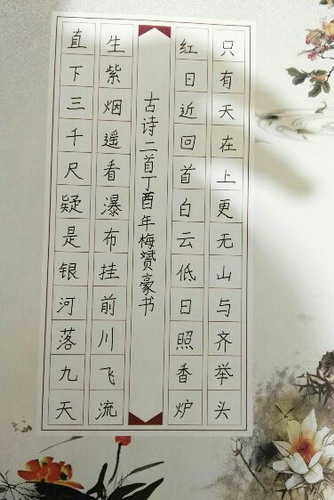 只有天在上更无山与齐举头
红日近回首白云低日照香炉
古诗二首丁酉年梅赟豪书
生紫烟遥看瀑布挂前川飞流
直下三千尺疑是银河落九天